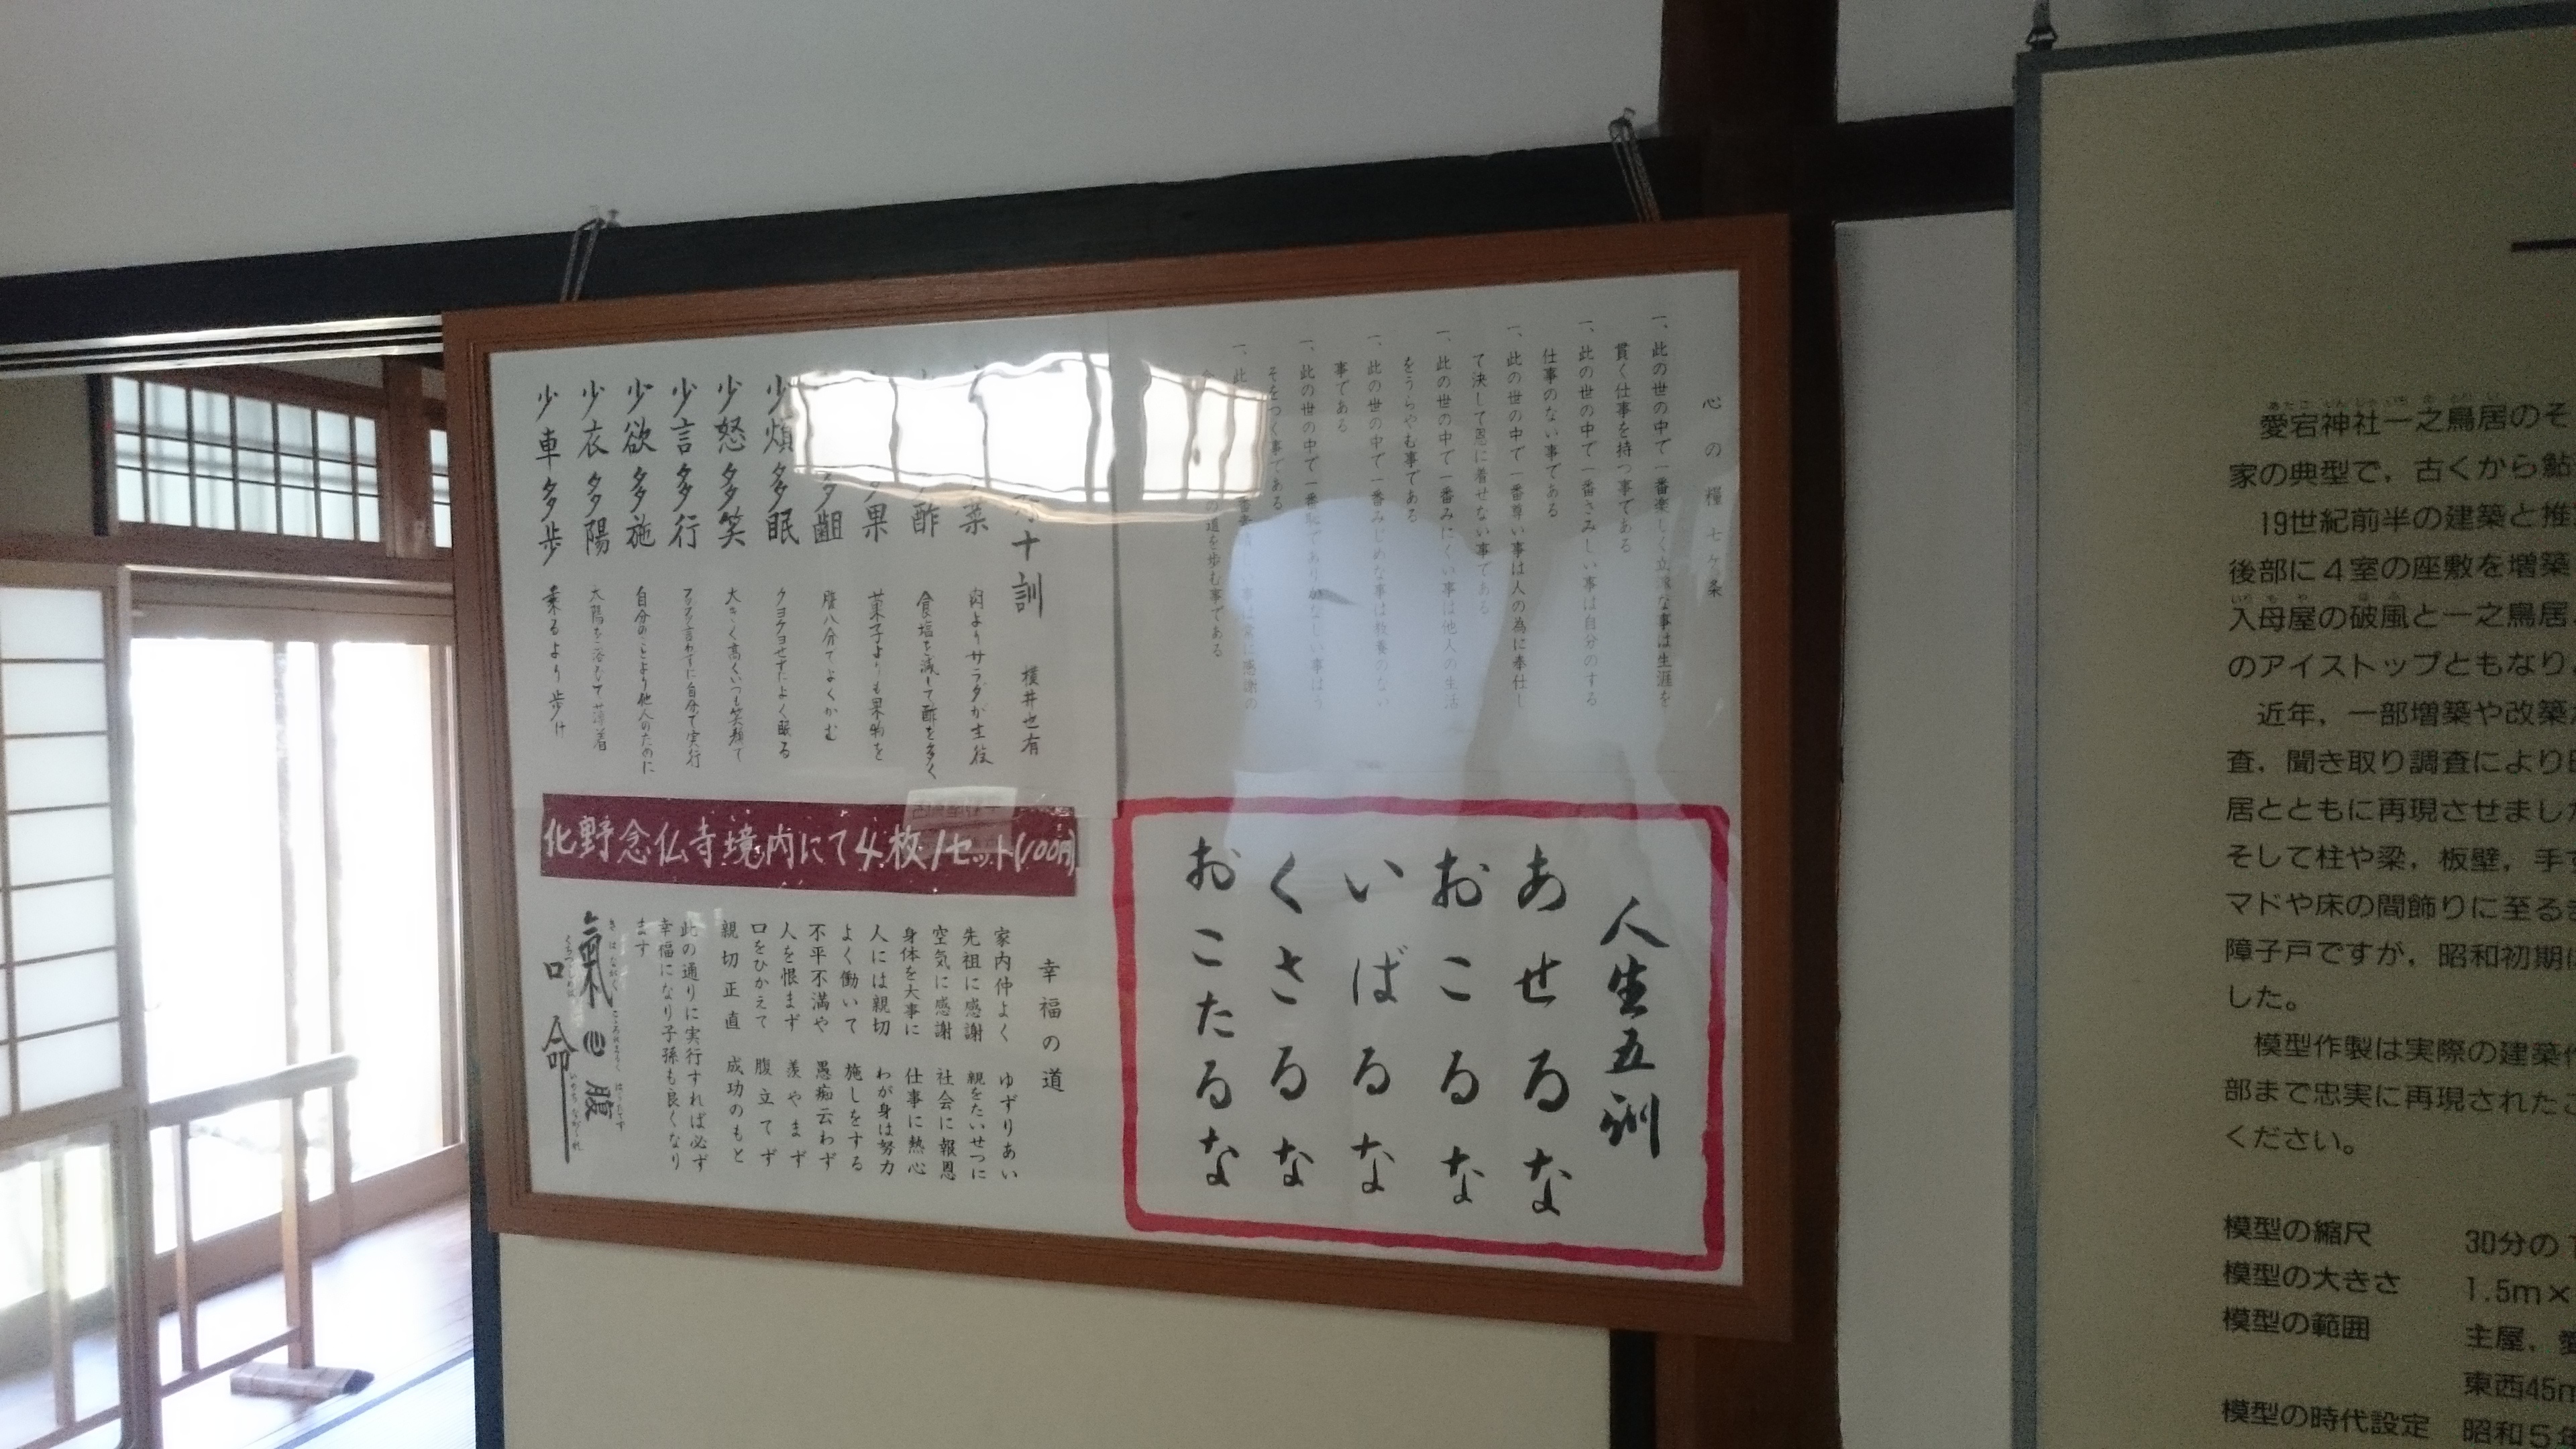 心の糧七ケ条
一、此の世の中で一番楽しく立派な事は生涯を
貫く仕事を持つ事である
一、此の世の中で一番さみしい事は自分のする
仕事のない事である
一、此の世の中で一番尊い事は人の為に奉仕し
て決して恩に着せない事である
一、此の世の中で一番みにくい事は他人の生活
をうらやむ事である
一、此の世の中で一番みじめな事は教養のない
事である
一、此の世の中で一番恥でありかなしい事はう
そをつく事である
一、此
番素晴しい事は常に感謝の
の道を歩む事である
十訓 横井也有
菜 肉よりサラダか生
酢 食塩を減して酢を多く
果 菓子よりも果物を
多齟 腹八分でよくかむ
少煩多眠 クヨクヨせずによく眠る
少怒多笑 大きく高くいつも笑顔で
少言多行 言わずに自分で実行
少欲多施 自分のことより他人のために
少衣多陽 太陽を浴びて薄着
少車多歩 乗るより歩け
化野念仏寺境内にて4枚1セット(100円)
人生五訓
あせるな
おこるな
いばるな
くさるな
おこたるな
幸福の道
家内仲よく ゆずりあい
先祖に感謝 親をたいせつに
空気に感謝 社会に報恩
身体を大事に 仕事に熱心
人には親切 わが身は努力
よく働いて 施しをする
不平不満や 愚痴云わず
人を恨まず 羨やまず
口をひかえて 腹立てず
親切正直 成功のもと
此の通りに実行すれば必ず
幸福になり子孫も良くなり
ます
氣心腹
口命
愛宕神社一之鳥居のそ
家の典型で，古くから鮎
19世紀前半の建築と推
後部に４室の座敷を増築
入母屋の破風と一之鳥居
のアイストップともなり
近年，一部増築や改築
査，聞き取り調査により
居とともに再現させまし
そして柱や梁，板壁，手
マドや床の間飾りに至る
障子戸ですが，昭和初期
した。
模型作製は実際の建築
部まで忠実に再現された
ください。
模型の縮尺 30分の1
模型の大きさ 1.5m×
模型の範囲 主屋，愛
東西45m
模型の時代設定 昭和５年